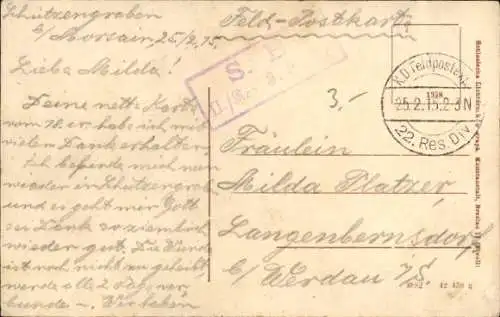 Schützengraben
b/ Morsain, 25/2. 15.
Liebe Milda!
Deine nette Karte
vom 18. er habe ich mit
vielem Dank erhalten
Ich befinde mich nun
wieder im Schützengraben
und es geht mir Gott
sei Dank so ziemlich
wieder gut. Die Wunde
ist noch nicht zu geheilt
werde alle 2 Tage ver-
bunden -. Verleben
Feld-Postkarte
S. B.
3.-
K.D. Feldpostexp.
25.2.15. 2-3N
22. Res. Div.
Fräulein
Milda Platzer
Langenbernsdorf
b/ Werdau i/S.